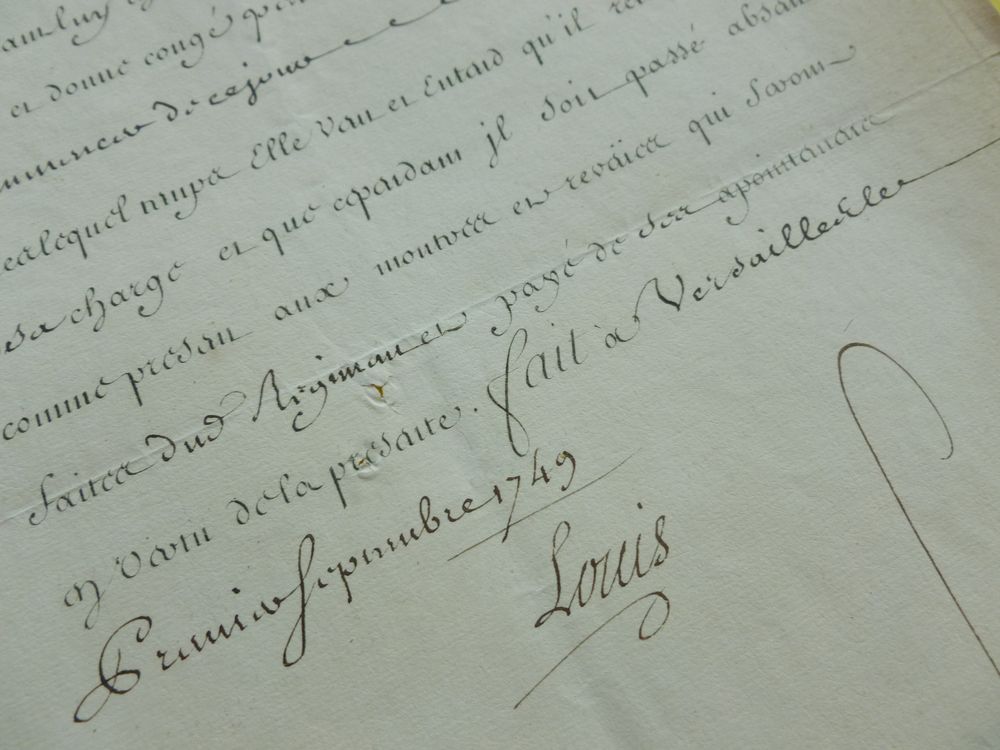 et donne congé
de ce jour
lequel temps Elle Veut et Entend qu'il
sa charge et que cependant jl soit passé absent
comme present aux montres et reveües qui seront
faites dud Regiment et payé de ses apointements
en vertu de la presente. fait à Versailles le
Premier septembre 1749
Louis